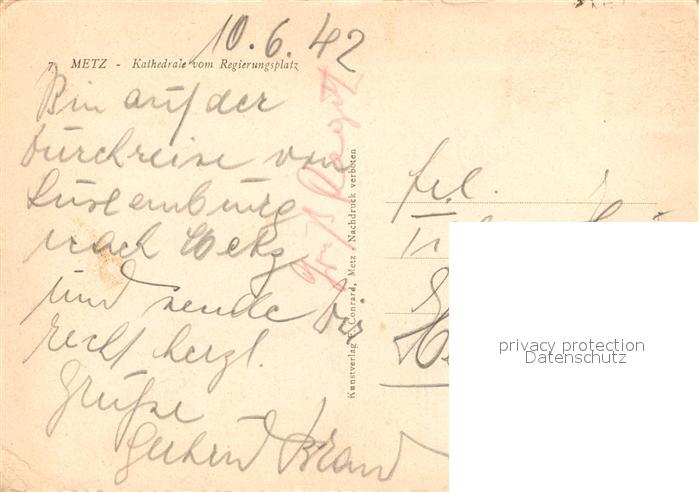 10.6.42
7. METZ - Kathedrale vom Regierungsplatz
Bin auf der
Durchreise von
Luxemburg
nach Metz
und sende Dir
recht herzl.
Grüße
Gerhard Brand
Gruß
Kunstverlag Conrard, Metz Nachdruck verboten
Frl.
privacy protection
Datenschutz